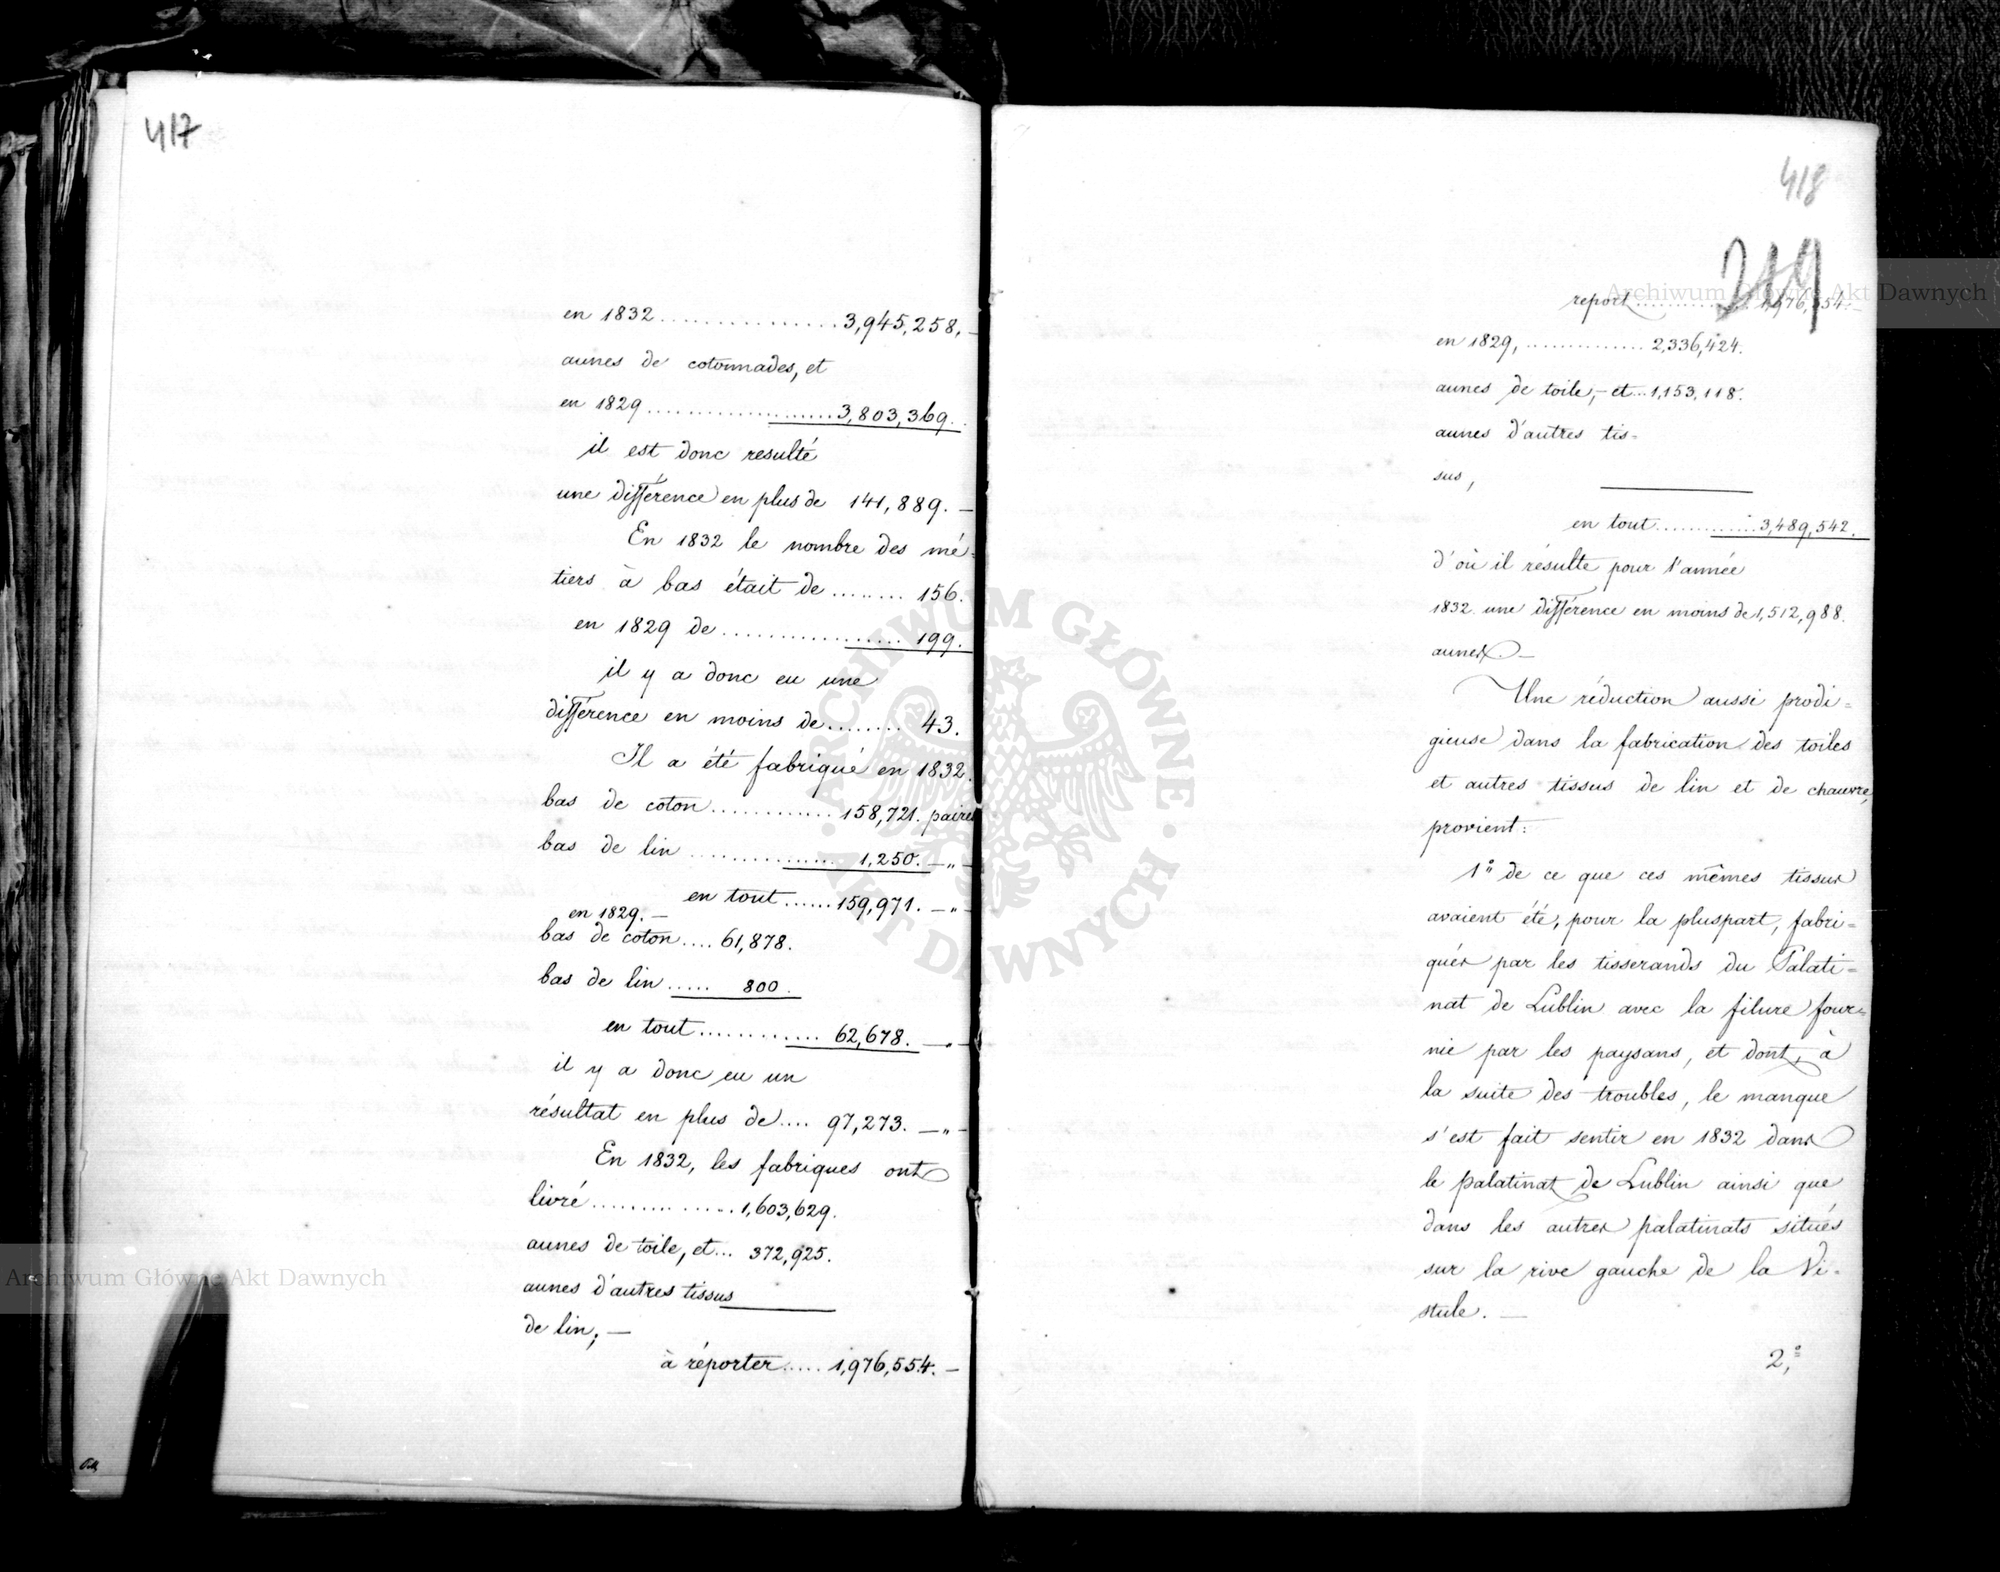 417
en 1832 ................ 3,945,258. —
aunes de cotonnades, et
en 1829 .................... 3,803,369.
il est donc resulté
une différence en plus de 141,889. —
En 1832 le nombre des mé=
tiers à bas était de ........ 156.
en 1829 de .................. 199.
il y a donc eu une
différence en moins de ........ 43.
Il a été fabriqué en 1832.
bas de coton ............ 158,721. paires
bas de lin ............... 1,250. —"—
en tout ...... 159,971. —"—
en 1829. —
bas de coton .... 61,878.
bas de lin ..... 800.
en tout ............ 62,678. —"—
il y a donc eu un
résultat en plus de .... 97,273. —"—
En 1832, les fabriques ont
livré .............. 1,603,629.
aunes de toile, et ... 372,925.
aunes d'autres tissus
de lin, —
à réporter ..... 1,976,554. —
418
219
report .............. 1,976,554. —
en 1829, .............. 2,336,424.
aunes de toile, — et ... 1,153,118.
aunes d'autres tis=
sus,
en tout ............ 3,489,542.
d'où il résulte pour l'année
1832 une différence en moins de 1,512,988.
aunes. —
Une réduction aussi prodi=
gieuse dans la fabrication des toiles
et autres tissus de lin et de chauvre,
provient:
1° de ce que ces mêmes tissus
avaient été, pour la pluspart, fabri=
qués par les tisserands du Palati=
nat de Lublin avec la filure four=
nie par les paysans, et dont, à
la suite des troubles, le manque
s'est fait sentir en 1832 dans
le palatinat de Lublin ainsi que
dans les autres palatinats situés
sur la rive gauche de la Vi=
stule. —
2,°
Archiwum Główne Akt Dawnych
Archiwum Główne Akt Dawnych
ARCHIWUM GŁÓWNE · AKT DAWNYCH ·